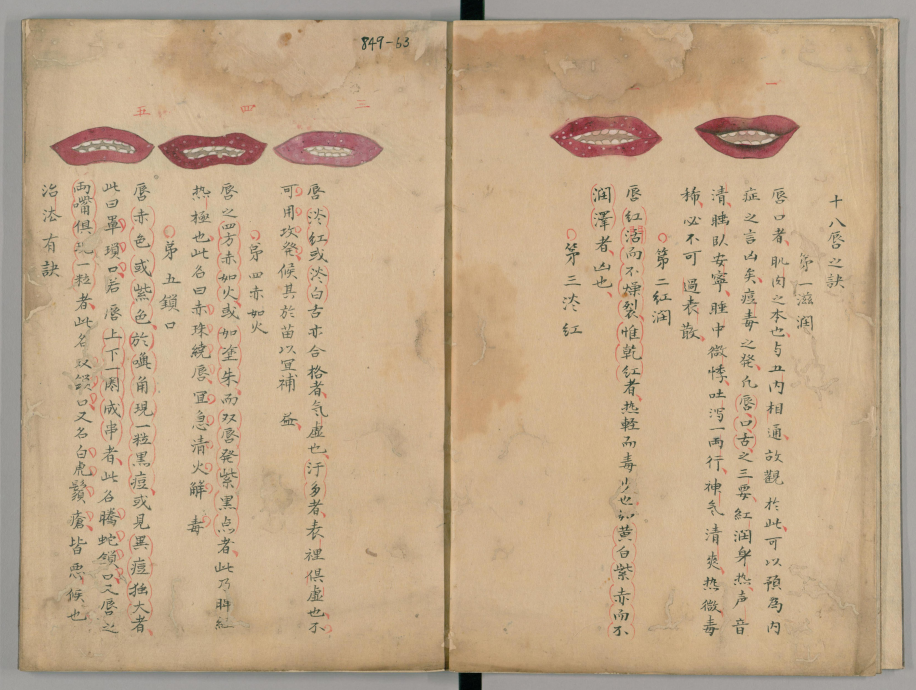 849-63
一
二
十八唇之訣
第一滋潤
唇口者肌肉之本也与五内相通故觀於此可以預爲内
症之言凶矣痘毒之発凡唇口舌之三要紅潤身熱声音
清睡臥安寧睡中微悸吐瀉一兩行神気清爽熱微毒
稀必不可過表散
第二紅潤
唇紅活而不燥裂惟乾紅者热軽而毒少也如黄白紫赤而不
潤澤者凶也
第三淡紅
三
四
五
唇淡紅或淡白舌亦合格者気虚也汗多者表裡倶虚也不
可用攻発候其於苗以宜補益
第四赤如火
唇之四方赤如火或如塗朱而双唇発紫黒点者此乃
热極也此名曰赤珠繞唇宜急清火解毒
第五鎖口
唇赤色或紫色於嘴角現一粒黒痘或見異痘独大者
此曰單鎖口若唇上下一圏成串者此名騰蛇鎖口又唇之
両嘴倶現一粒者此名双鎖口又名白虎鬚瘡皆悪候也
治法有訣